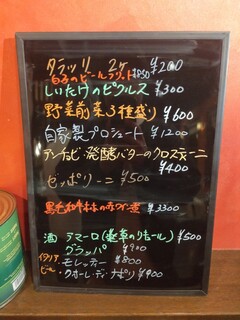 タラッリ 2ケ ¥200
白子のビールフリット ¥850
しいたけのピクルス ¥300
野菜前菜3種盛り ¥600
自家製プロシュート ¥1200
アンチョビ・発酵バターのクロスティーニ
¥400
ゼッポリーニ ¥500
黒毛和牛ホホの赤ワイン煮 ¥3300
酒 アマーロ(薬草のリキュール) ¥500
グラッパ ¥900
イタリアビール モレッティー ¥800
クオーレ・ディ・ナポリ ¥900